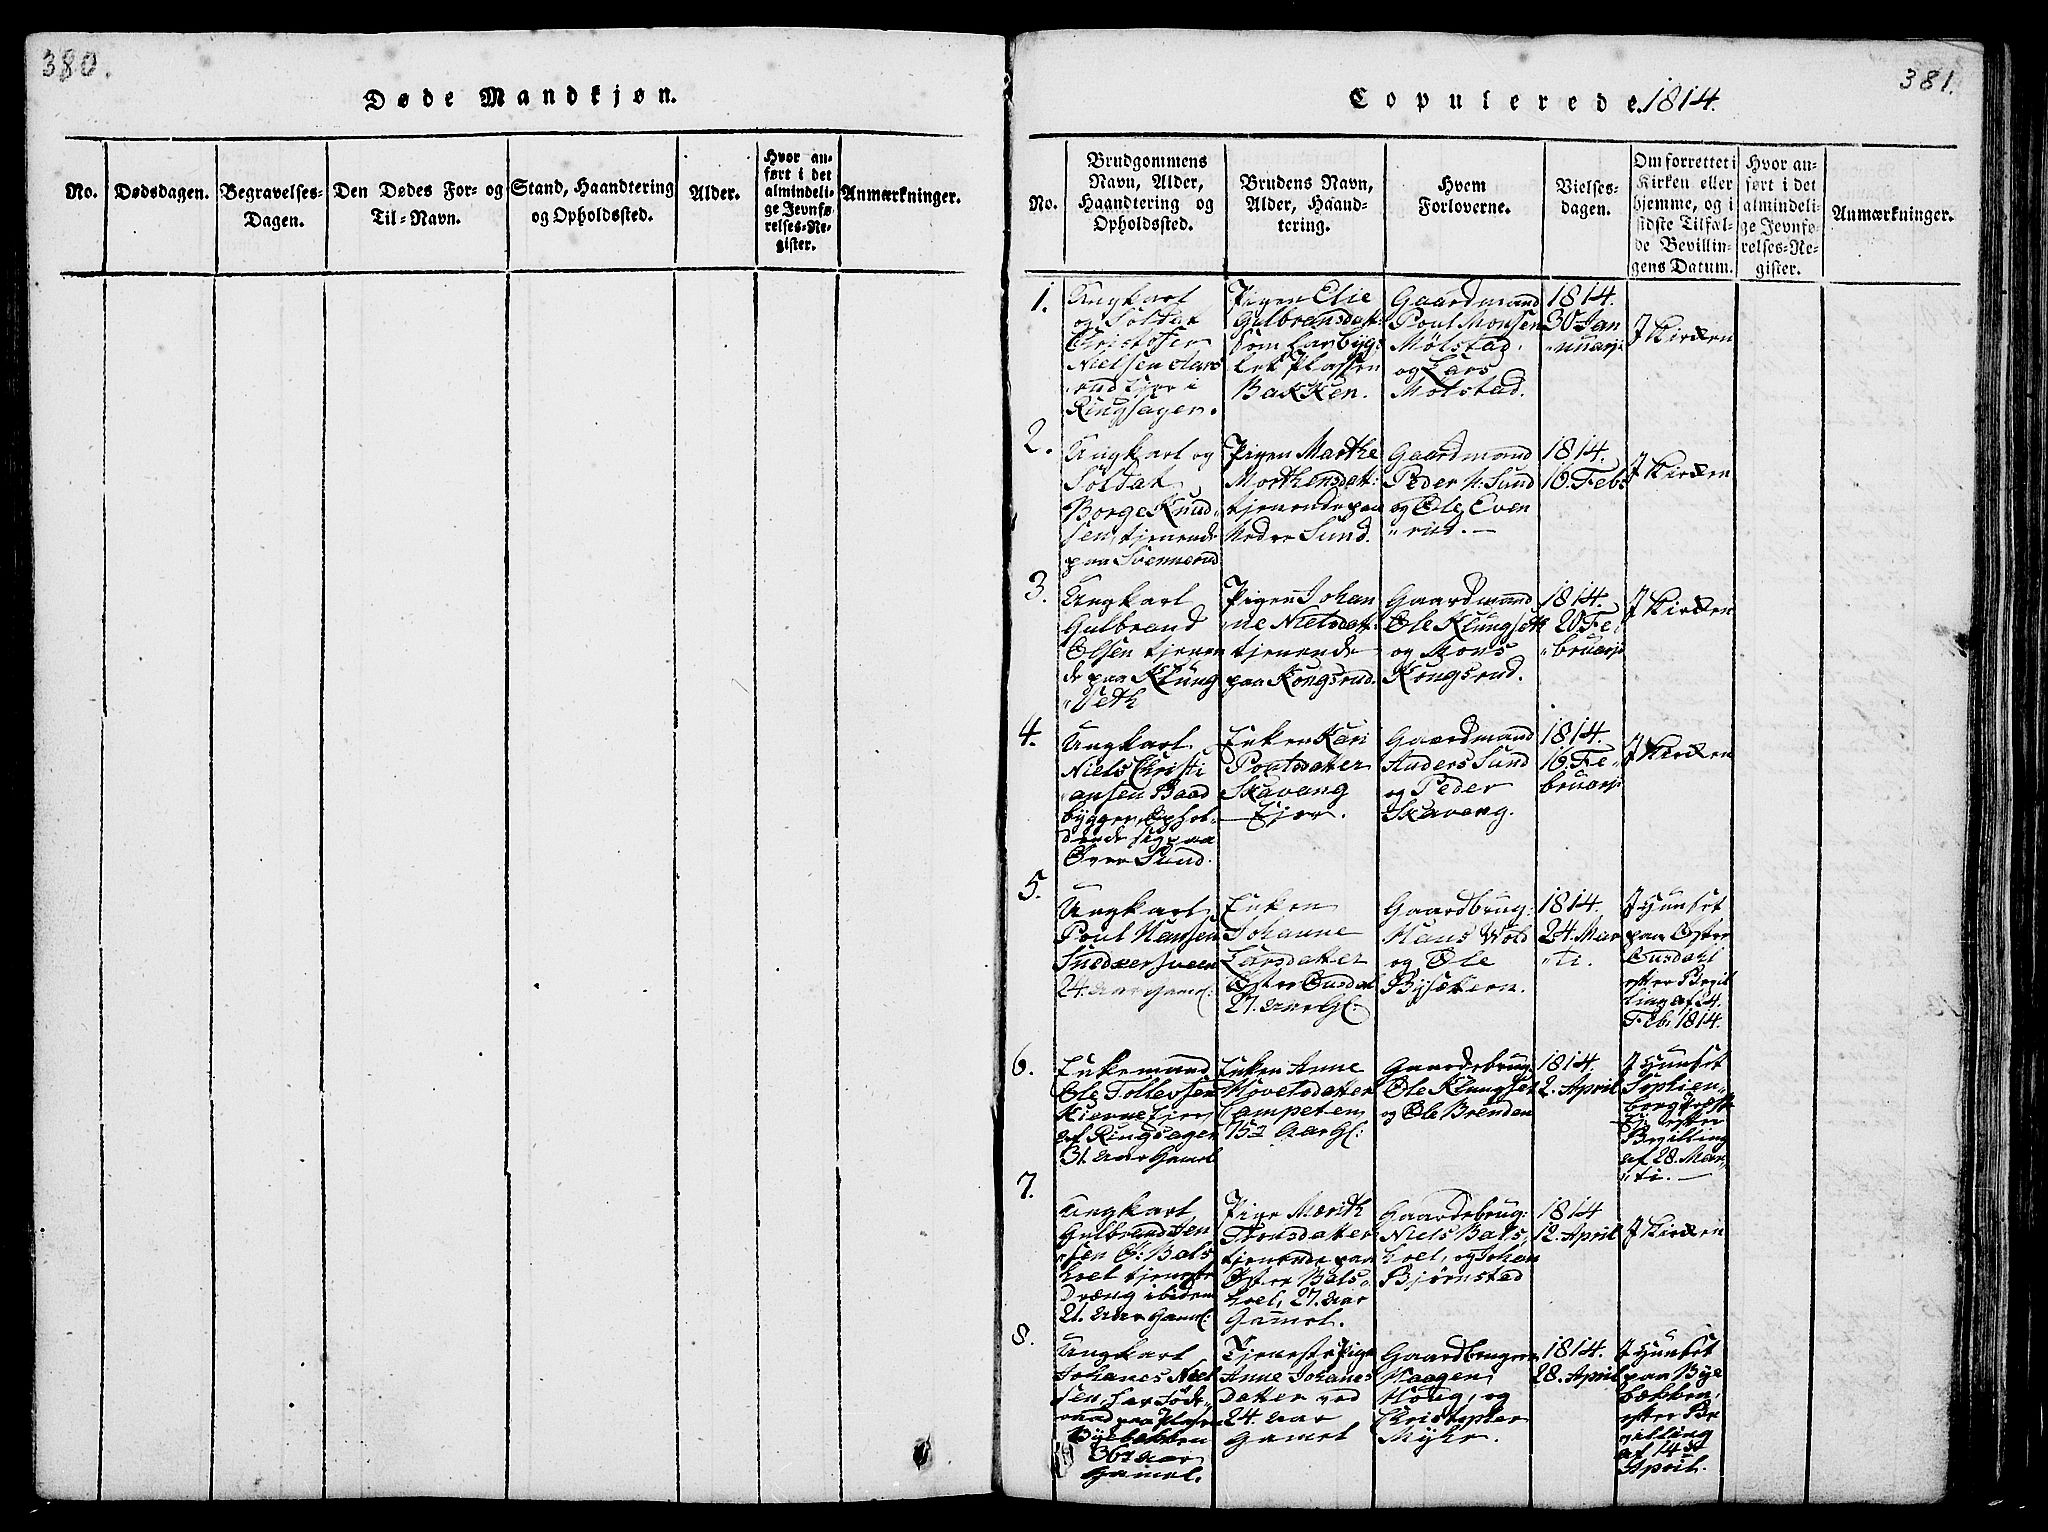 380.
Døde Mandkjøn.
No.
Dødsdagen.
Begravelses-
Dagen.
Den Dødes For- og
Til-Navn.
Stand, Haandtering
og Opholdssted.
Alder.
Hvor an-
ført i det
almindeli-
ge Jevnfø-
relses-Re-
gister.
Anmærkninger.
381.
Copulerede 1814.
No.
Brudgommens
Navn, Alder,
Haandtering og
Opholdssted.
Brudens Navn,
Alder, Haand-
tering.
Hvem
Forloverne.
Vielses-
dagen.
Om forrettet i
Kirken eller
hjemme, og i
sidste Tilfæl-
de Bevillin-
gens Datum.
Hvor an-
ført i det
almindeli-
ge Jevnfø-
relses-Re-
gister.
Anmærkninger.
1.
Ungkarl
og Soldat
Christofer
Nielsen
i
Ringsager.
Pigen Elie
Gulbrensdat:
Pladsen
Bakken.
Gaardmand
Poul Monsen
Mølstad.
og Lars
Mølstad.
1814.
30 Jan
"uarj
J Kirken
2.
Ungkarl og
Soldat
Borge Knud
sen, tjenende
paa Svennerud
Pigen Marthe
Morthensdat:
tjenende paa
Nedre Sund.
Gaardmand
Peder N: Sund
og Ole Even
"rud. —
1814.
16. Feb:
J Kirken
3.
Ungkarl
Gulbrand
Olsen tjenen
de paa Klung
"seth
Pigen Johan
"ne Nielsdat:
tjenende
paa Kongsrud.
Gaardmand
Ole Klungseth
og Mons
Kongsrud.
1814.
20 Fe
"bruarj
J Kirken
4.
Ungkarl
Niels Christi
"ansen Baad
bygger, Ophol-
dende sig paa
Øvre Sund.
Enken Kari
Poulsdatter
Skavang
Eier.
Gaardmand
Anders Sund
og Peder
Skavang.
1814.
16. Fe-
bruarj
J Kirken
5.
Ungkarl
Poul Hansen
Snedkersveen
24. Aar Gaml:
Enken
Johanne
Larsdatter
Østre
27. Aar Gl:
Gaardbrug:
Hans Wold
og Ole
1814.
24. Mar
"ti.
J Huuset
paa Østre
efter Bevil
ling af 24.
Feb: 1814.
6.
Enkemand
Ole Tollevsen
af Ringsager
31. Aar Gamel
Enken Anne
Hovelsdatter
Aar Gl:
Gaardebrug
Ole Klungset
og Ole Brenden
1814.
2. April
J Huuset
Sophien-
berg
efter
Bevilling
af 28. Mar
"ti. —
7.
Ungkarl
Gulbrand Jen
"sen Ø: Bals
hoel tjeneste
Dræng ibidem
21. Aar Gaml:
Pige Marith
datter
tjenende paa
Østre Bals-
hoel, 27. Aar
Gamel.
Gaardebrug:
Niels Bals
hoel, og Johan
Bjørnstad
1814
12. April
J Kirken
8.
Ungkarl
Johanes Niel
sen, har Føde
raad paa Pladsen
Byebekken
Aar
Gamel.
Tjeneste Pige
Anne Johanes
Datter ved
24. Aar
Gamel
Gaardbrugere
Haagen
Houg, og
Christopher
Myhr.
1814.
28. April
J Huuset
paa Bye
bækken,
efter Be
villing
af 14de
April.